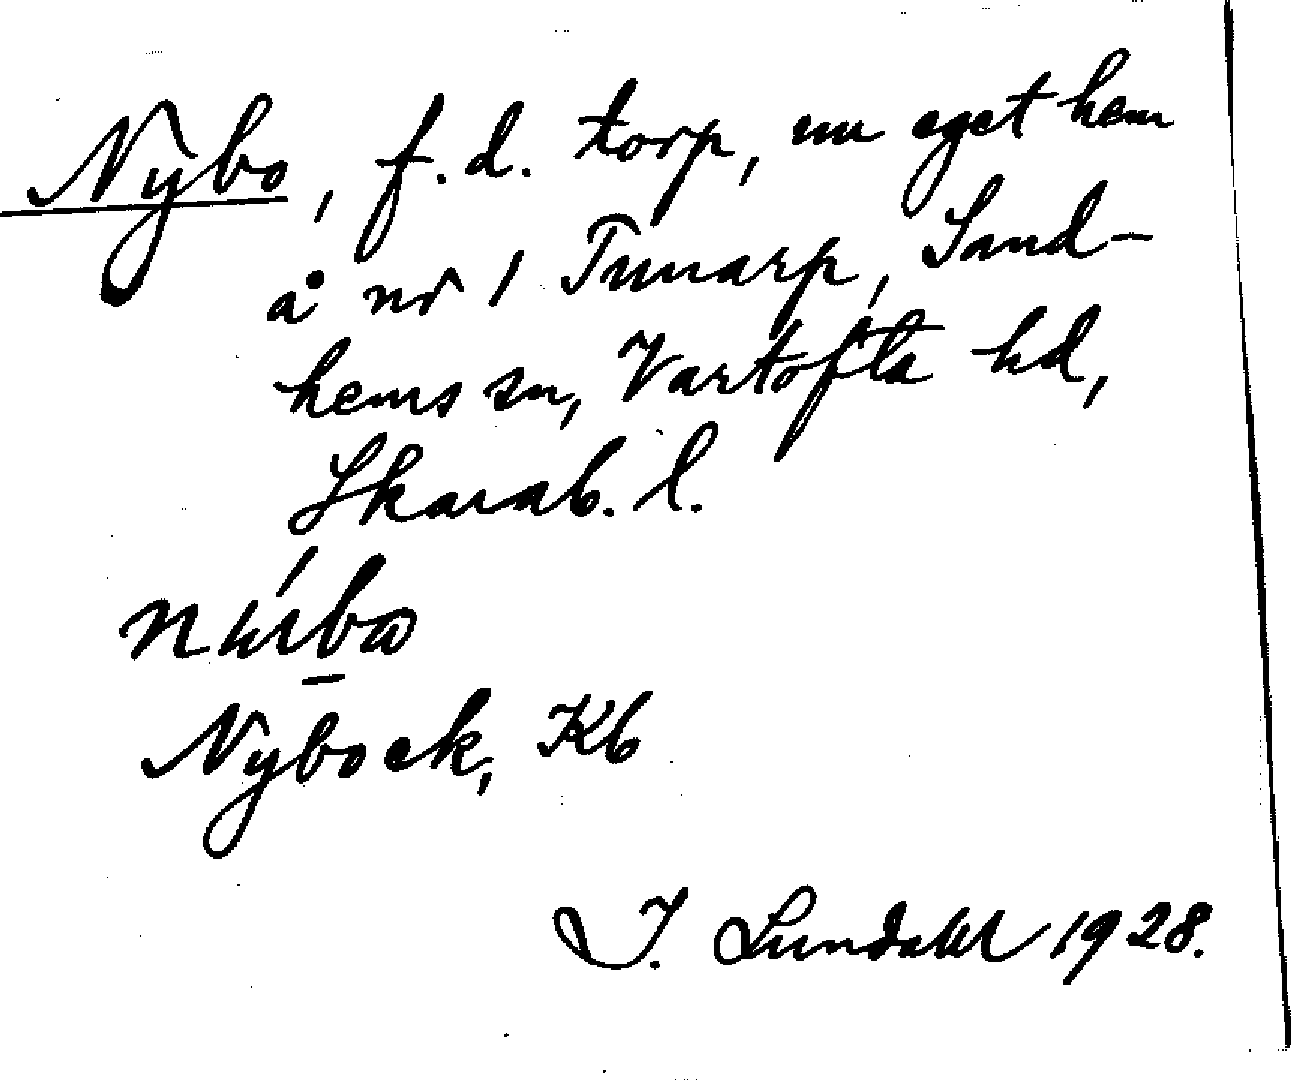 Nybo, f.d. torp, nu eget hem
å nr 1 Tunarp, Sand-
hems sn, Vartofta hd,
Skarab. l.
Nyboek, Kb
I. Lundahl 1928.